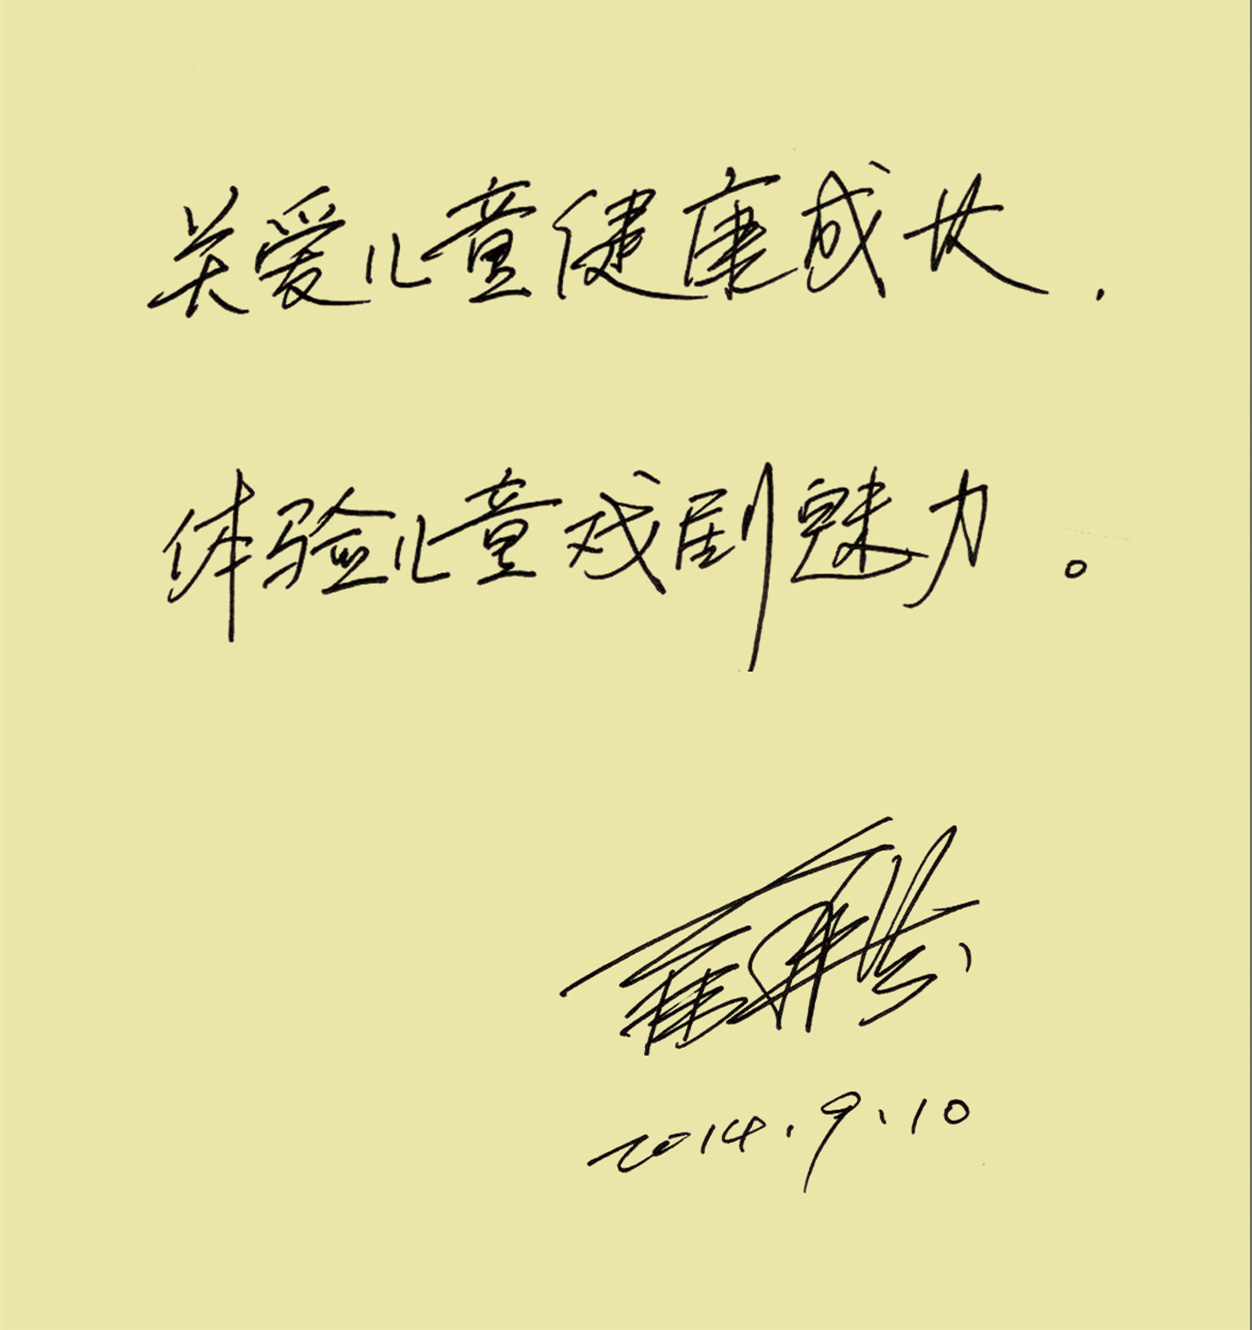 关爱儿童健康成长,
体验儿童戏剧魅力。
2014.9.10